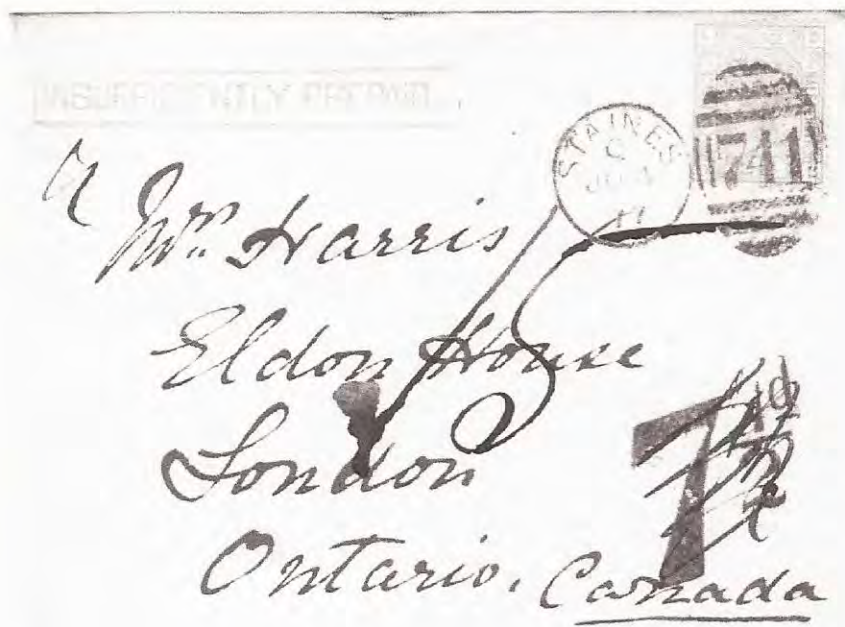 INSUFFICIENTLY PREPAID.
STAINES
C
JU 4
741
Mrs Harris
Eldon House
London
Ontario, Canada
15
7